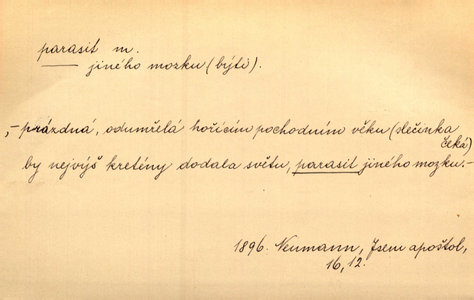 parasit m.
jiného mozku (býti).
„– prázdná, odumřelá hořícím pochodním věku (slečinka čeká)
by nejvýš kretény dodala světu, parasit jiného mozku.–
1896. Neumann, Jsem apoštol,
16, 12.